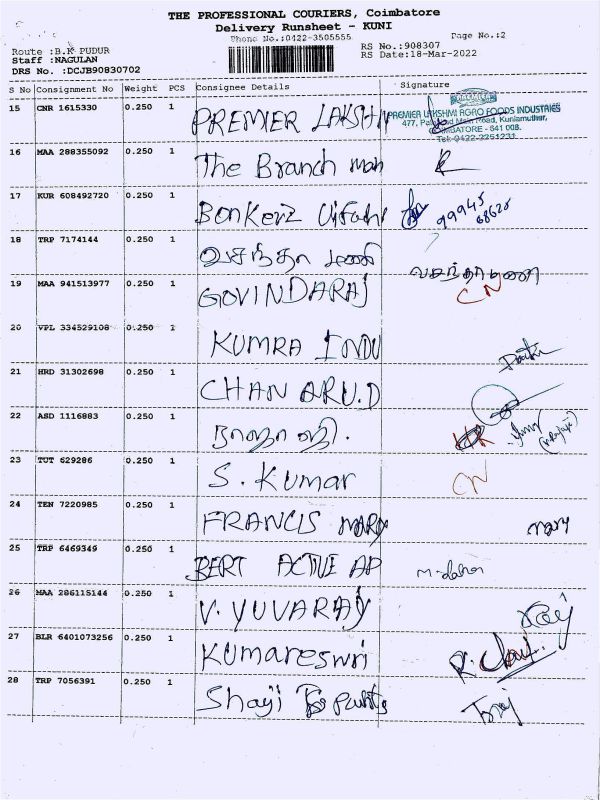 THE PROFESSIONAL COURIERS, Coimbatore
Delivery Runsheet - KUNI
Phone No.:0422-3505555 Page No.:2
Route :B.K PUDUR RS No.:908307
Staff :NAGULAN RS Date:18-Mar-2022
DRS No. :DCJB90830702
S No Consignment No Weight PCS Consignee Details Signature
15 CNR 1615330 0.250 1 PREMIER LAKSHM
PREMIER LAKSHMI AGRO FOODS INDUSTRIES
477, Road, Kuniamuthur,
COIMBATORE - 641 008.
Tel: 0422-2251231
16 MAA 288355092 0.250 1 The Branch man
17 KUR 608492720 0.250 1 Bonkerz 99945 68625
18 TRP 7174144 0.250 1 வசந்தா மணி வசந்தாமணி
19 MAA 941513977 0.250 1 GOVINDARAJ CN
20 VPL 334529108 0.250 1 KUMRA INDU
21 HRD 31302698 0.250 1 CHAN ARU.D
22 ASD 1116883 0.250 1
23 TUT 629286 0.250 1 S. Kumar CN
24 TEN 7220985 0.250 1 FRANCIS MARY mary
25 TRP 6469349 0.250 1 BERT ACTIVE AP
26 MAA 286115144 0.250 1 V. YUVARAJ
27 BLR 6401073256 0.250 1 Kumareswri
28 TRP 7056391 0.250 1 Shaji